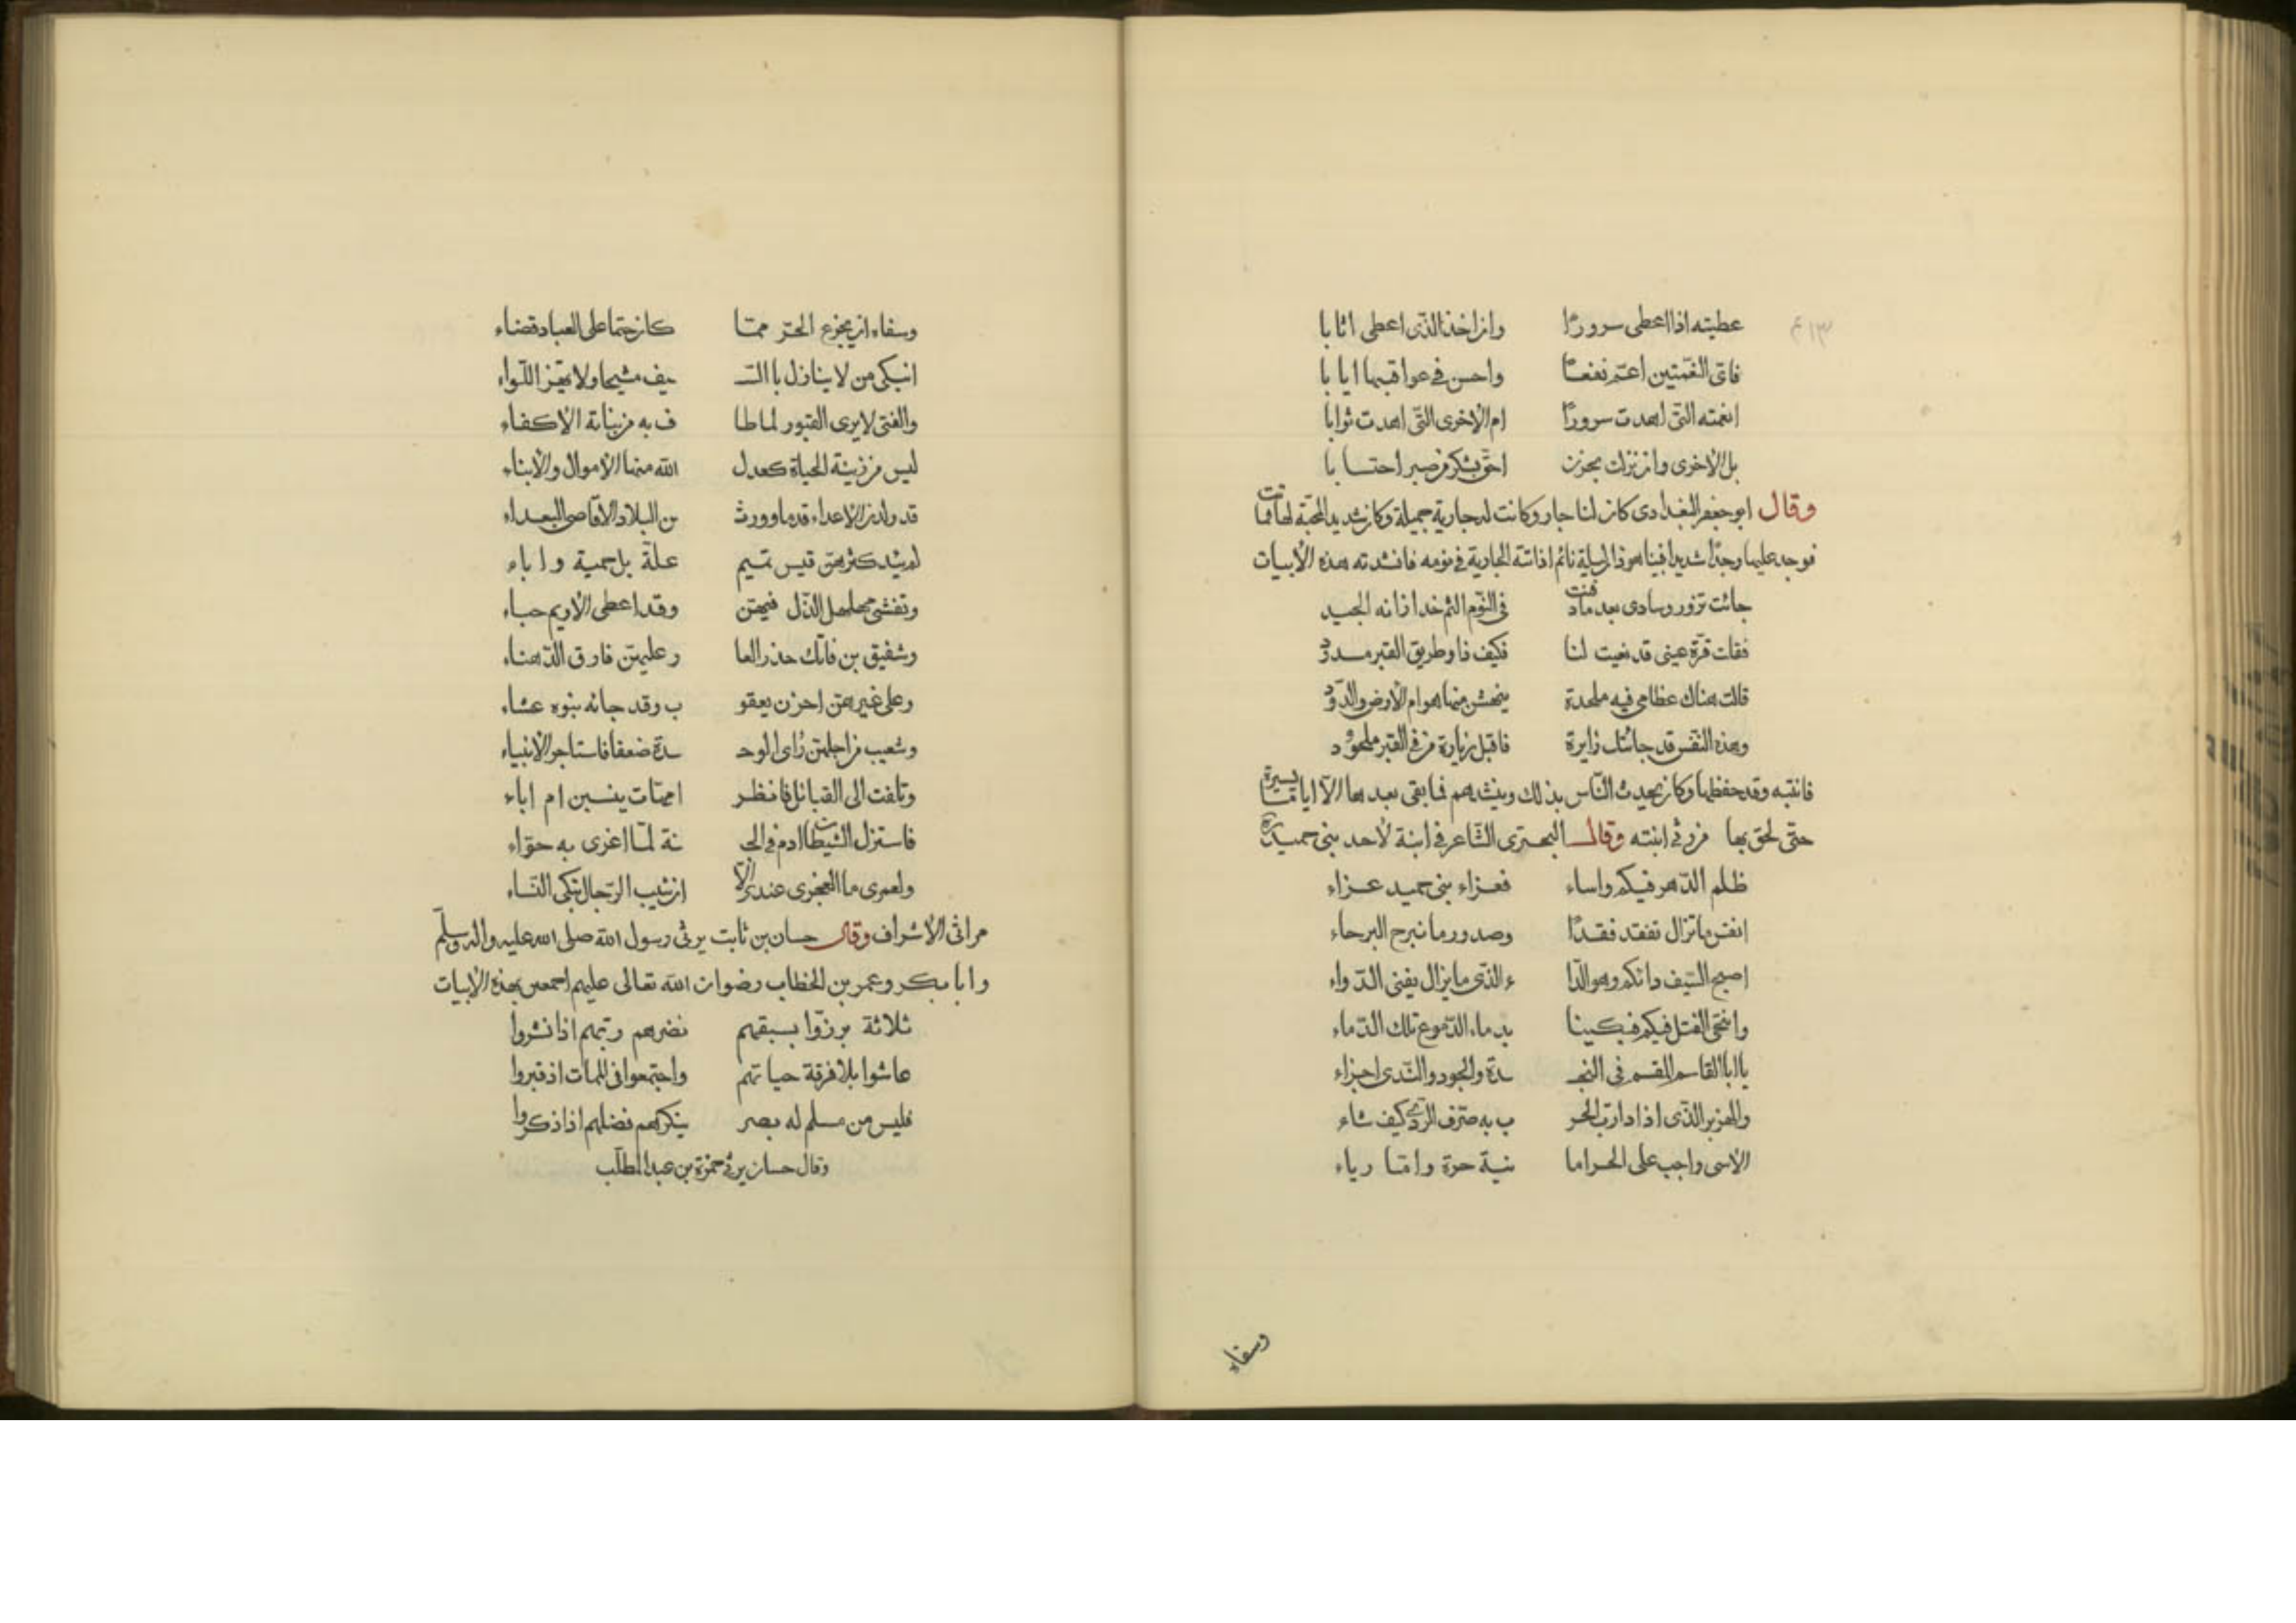 عطيته اذا اعطى سرورًا وان اخذ الذى اعطى اثابا
فاى النعمتين اعمّ نفعًا واحسن فى عواقبها ايابا
انعمته التى اهدت سرورًا ام الاخرى التى اهدت ثوابا
بل الاخرى وان نزلت بحزن احق بشكر من صبر احتسابا
وقال ابو جعفر البغدادى كان لنا جار وكانت له جارية جميلة وكان شديد المحبة لها فماتت
فوجد عليها وجدًا شديدا فبينا هو ذات ليلة نائم اذ اتته الجارية فى نومه فانشدته هذه الأبيات
جائت تزور وسادى بعد ما دفنت فى النوم الثم خدا زانه الجيد
فقلت قرة عينى قد نعيت لنا فكيف ذا وطريق القبر مسدود
قالت هناك عظامى فيه ملحدة ينهش منها هوام الأرض والدود
وهذه النفس قد جائتك زايرة فاقبل زيارة من فى القبر ملحود
فانتبه وقد حفظها وكان يحدث الناس بذلك وينشدهم فما بقى بعدها الا اياما يسيرة
حتى لحق بها من رثى ابنته وقال البحترى الشاعر فى ابنة لأحد بنى حميد
ظلم الدهر فيكم واساء فعزاء بنى حميد عزاء
انفس ما تزال تفقد فقدًا وصدور ما تبرح البرحاء
اصبح السيف دائكم وهو الدا ء الذى ما يزال يفنى الدواء
وانتحى القتل فيكم فبكينا بدماء الدموع تلك الدماء
يا ابا القاسم المقسم فى النجـ ـدة والجود والندى اجزاء
والهزبر الذى اذا دارت الحر ب به صرف الردى كيف شاء
الاسى واجب على الحر اما نية حرة واما رياء
وسفاء
وسفاء ان يجزع الحر مما كان حتما على العباد قضاء
انبكى من لا ينازل باالسـ ـيف مشيحا ولا يهز اللواء
والفتى لا يرى القبور لما طا ف به من بناته الاكفاء
ليس من زينة الحياة كعدل الله منها الاموال والأبناء
قد ولدن الاعداء قدما وورثـ ـن البلاد الاقاصى البعداء
لم يئد كثرهن قيس تميم علة بل حمية واباء
وتغشى مهلهل الذل فيهن وقد اعطى الاديم حباء
وشقيق بن فاتك حذر العا ر عليهن فارق الدهناء
وعلى غيرهن احزن يعقو ب وقد جائه بنوه عشاء
وشعيب من اجلهن رأى الوحـ ـدة ضعفا فاستاجر الانبياء
وتلفت الى القبائل فانظر امهات ينسبن ام اباء
فاستزل الشيطان ادم فى الجـ ـنة لما اغرى به حواء
ولعمرى ما العجز عندى الا ان تبيت الرجال تبكى النساء
مراثى الأشراف وقال حسان بن ثابت يرثى رسول الله صلى الله عليه واله وسلم
وابا بكر وعمر بن الخطاب رضوان الله تعالى عليهم اجمعين بهذه الأبيات
ثلاثة برزوا بسبقهم نضرهم ربهم اذا نشروا
عاشوا بلا فرقة حياتهم واجتمعوا فى الممات اذ قبروا
فليس من مسلم له بصر ينكرهم فضلهم اذا ذكروا
وقال حسان يرثى حمزة بن عبد المطلب